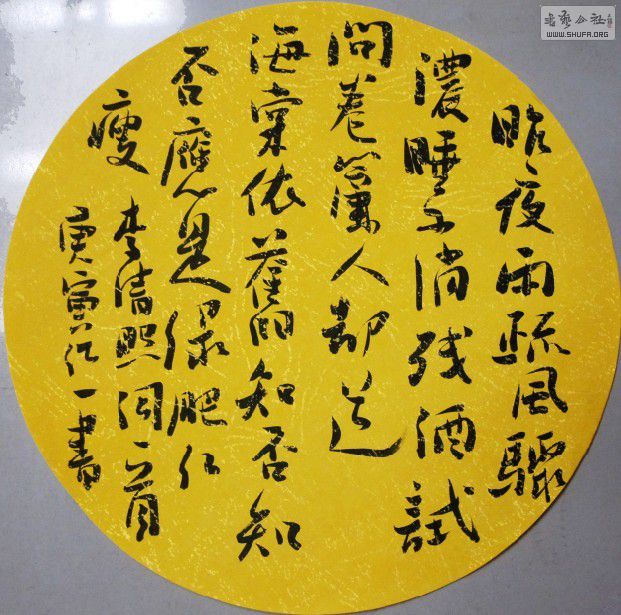 昨夜雨疏风驟
濃睡不消残酒試
問卷簾人却道
海棠依舊知否知
否應是绿肥红
瘦
李清照词一首
庚寅 一書
書藝公社
WWW.SHUFA.ORG